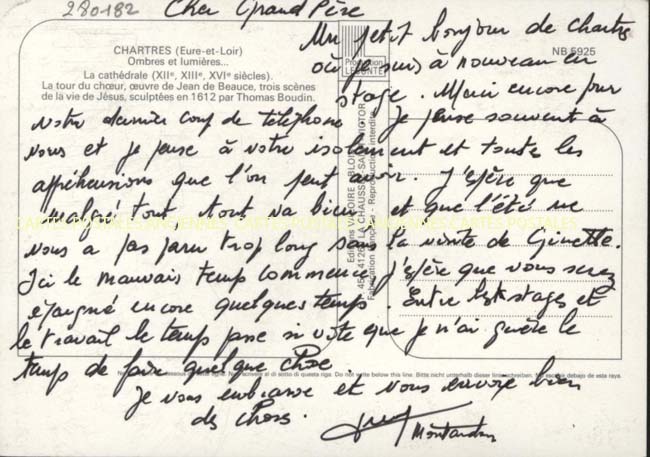 280182
Cher Grand Père
Un petit bonjour de Chartres
où je suis à nouveau en
stage. Merci encore pour
votre dernier coup de téléphone Je pense souvent à
vous et je pense à votre isolement et toutes les
appréhensions que l'on peut avoir. J'espère que
malgré tout tout va bien et que l'été ne
vous a pas paru trop long sans la visite de Ginette.
Ici le mauvais temps commence j'espère que vous serez
épargné encore quelques temps. Entre les stages et
le travail le temps passe si vite que je n'ai guère le
temps de faire quelque chose
Je vous embrasse et vous envoie bien
des choses.
CHARTRES (Eure-et-Loir)
Ombres et lumières...
La cathédrale (XIIe, XIIIe, XVIe siècles).
La tour du chœur, œuvre de Jean de Beauce, trois scènes
de la vie de Jésus, sculptées en 1612 par Thomas Boudin.
Production
LECONTE
NB 5925
Editions VALOIRE - BLOIS
41260 LA CHAUSSÉE SAINT-VICTOR
Fabrication française - Reproduction interdite
CARTES POSTALES ANCIENNES CARTES POSTALES ANCIENNES CARTES POSTALES
Do not write below this line. Bitte nicht unterhalb dieser linie schreiben. No escribe debajo de esta raya.